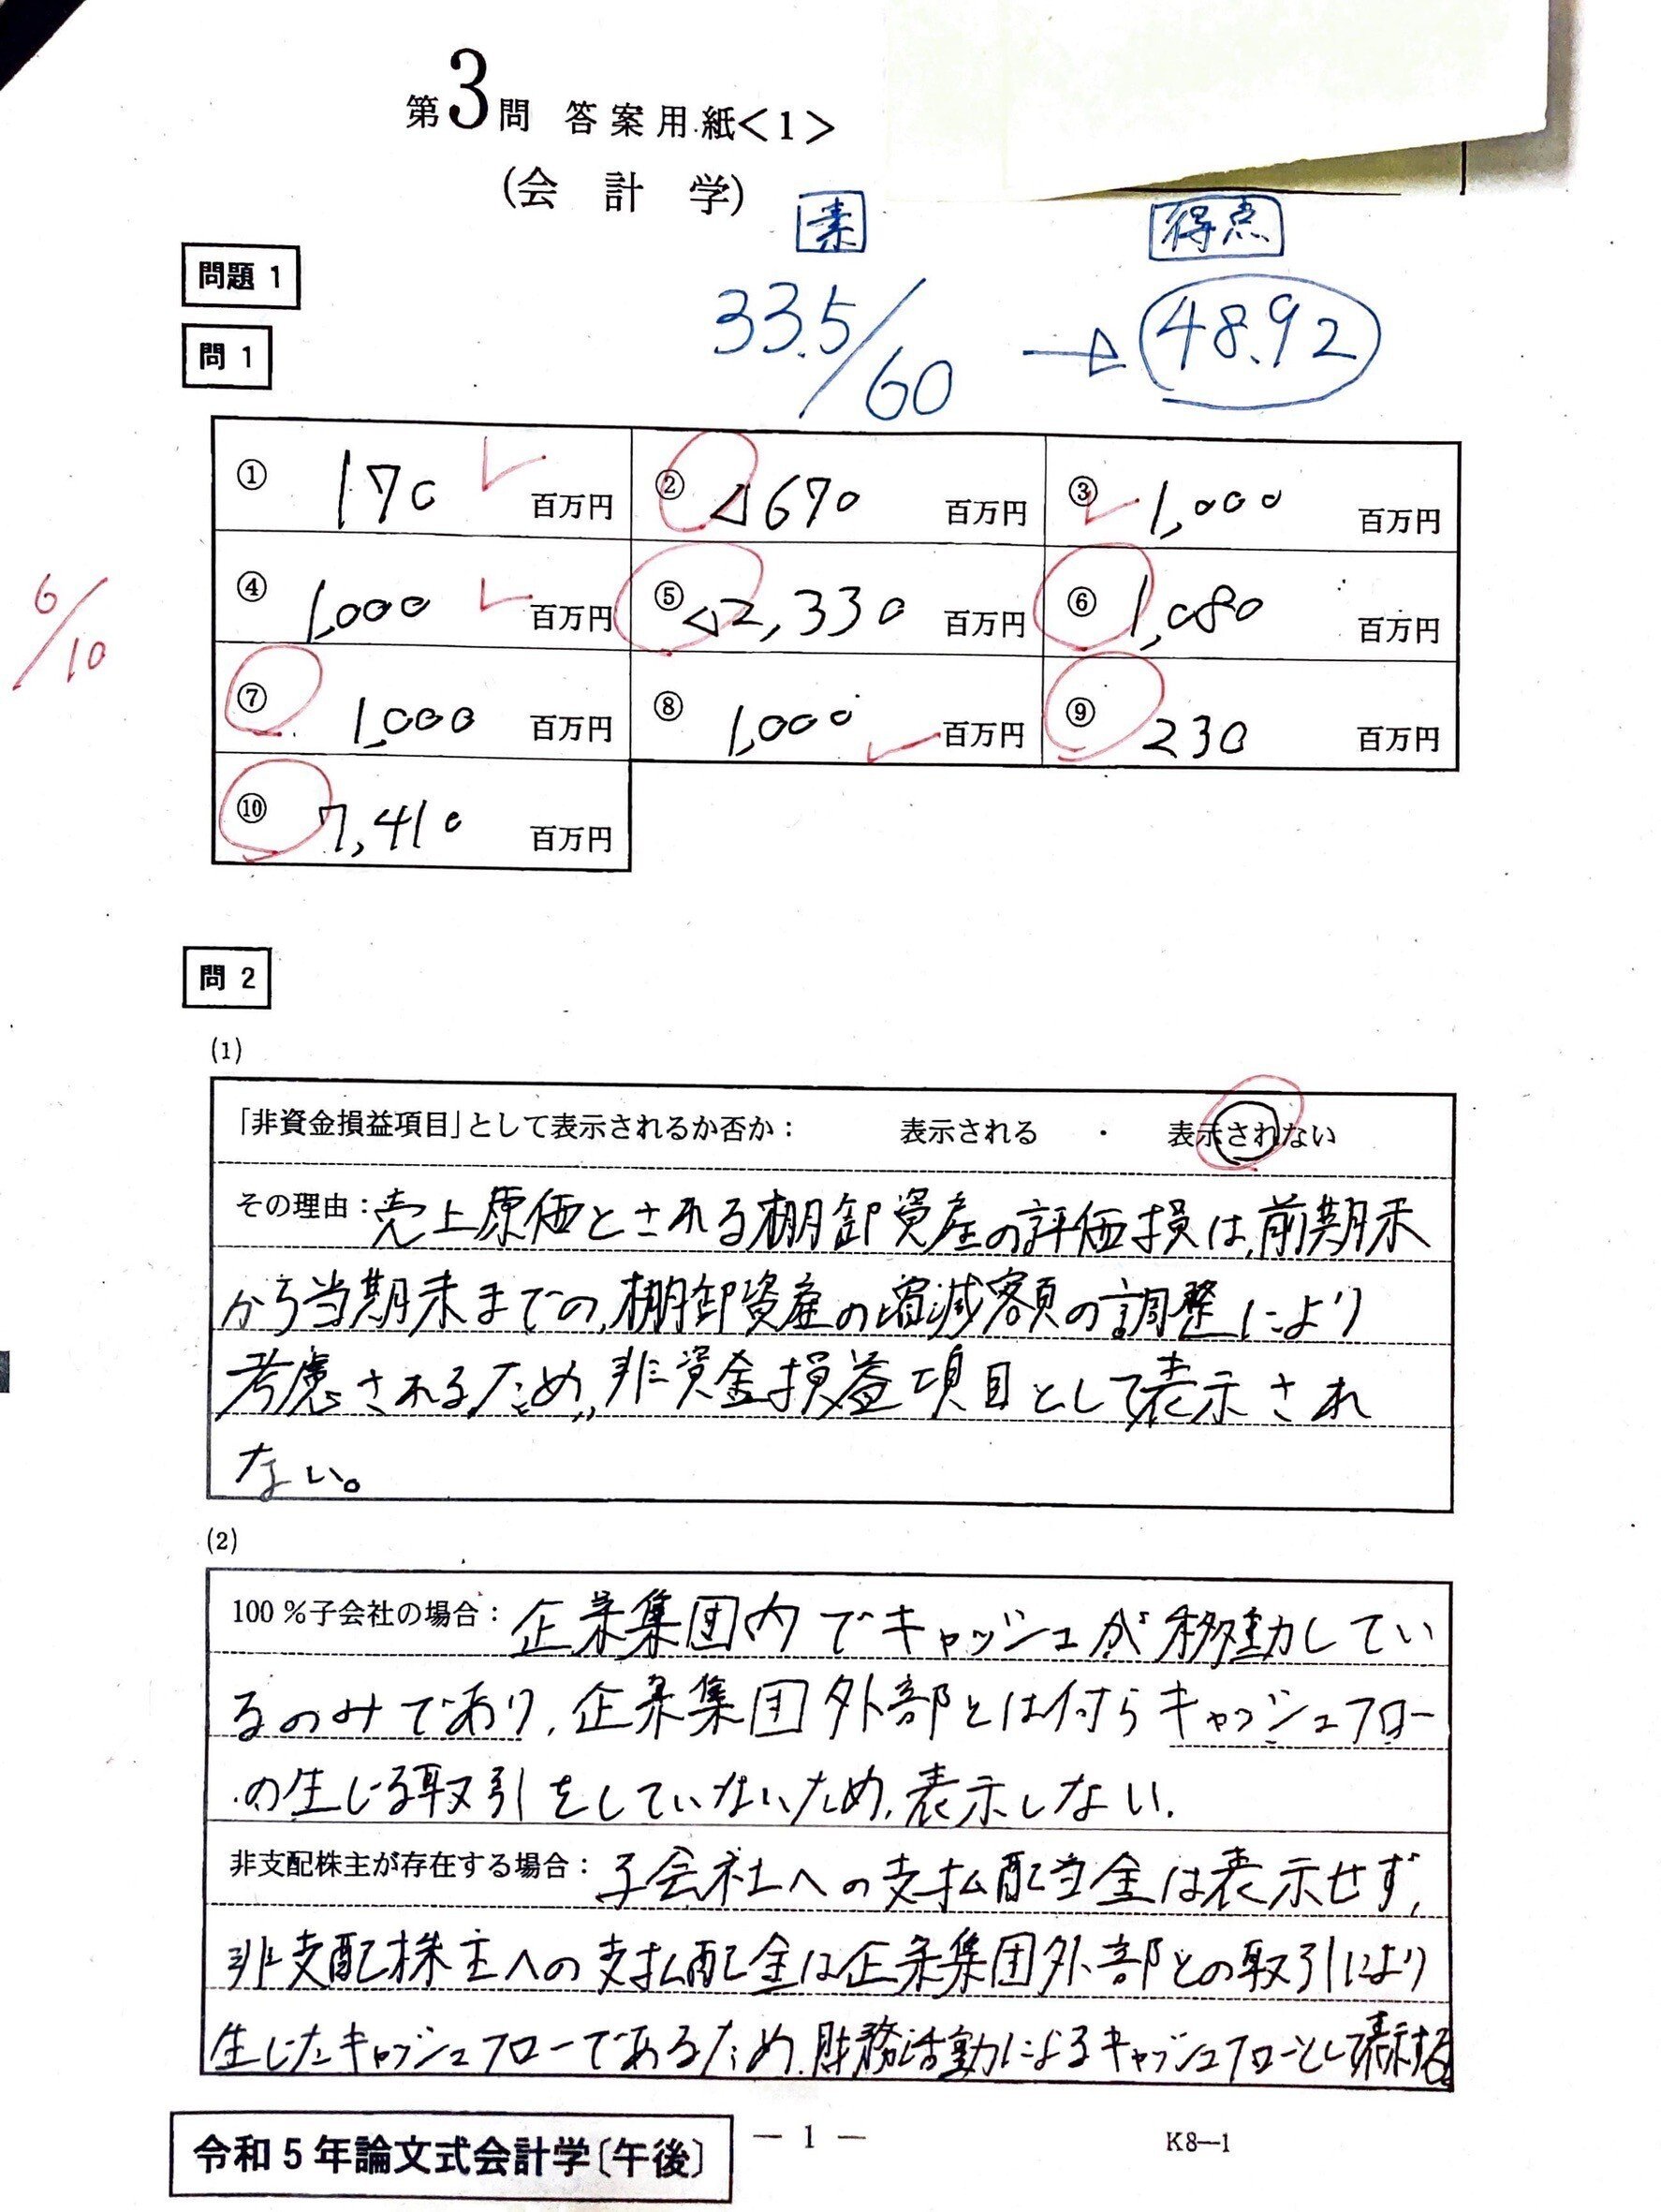 第3問 答案用紙<1>
(会計学)
素 得点
33.5/60 → 48.92
問題 1
問 1
① 170 百万円 ② △670 百万円 ③ 1,000 百万円
④ 1,000 百万円 ⑤ △2,330 百万円 ⑥ 1,080 百万円
6/10
⑦ 1,000 百万円 ⑧ 1,000 百万円 ⑨ 230 百万円
⑩ 7,410 百万円
問 2
(1)
「非資金損益項目」として表示されるか否か: 表示される ・ 表示されない
その理由:売上原価とされる棚卸資産の評価損は、前期末
から当期末までの、棚卸資産の増減額の調整により
考慮されるため、非資金損益項目として表示され
ない。
(2)
100%子会社の場合:企業集団内でキャッシュが移動してい
るのみであり、企業集団外部とは何らキャッシュフロー
の生じる取引をしていないため、表示しない.
非支配株主が存在する場合:子会社への支払配当金は表示せず,
非支配株主への支払配金は企業集団外部との取引により
生じたキャッシュフローであるため、財務活動によるキャッシュフローとして表示する。
令和5年論文式会計学〔午後〕
― 1 ―
K8―1